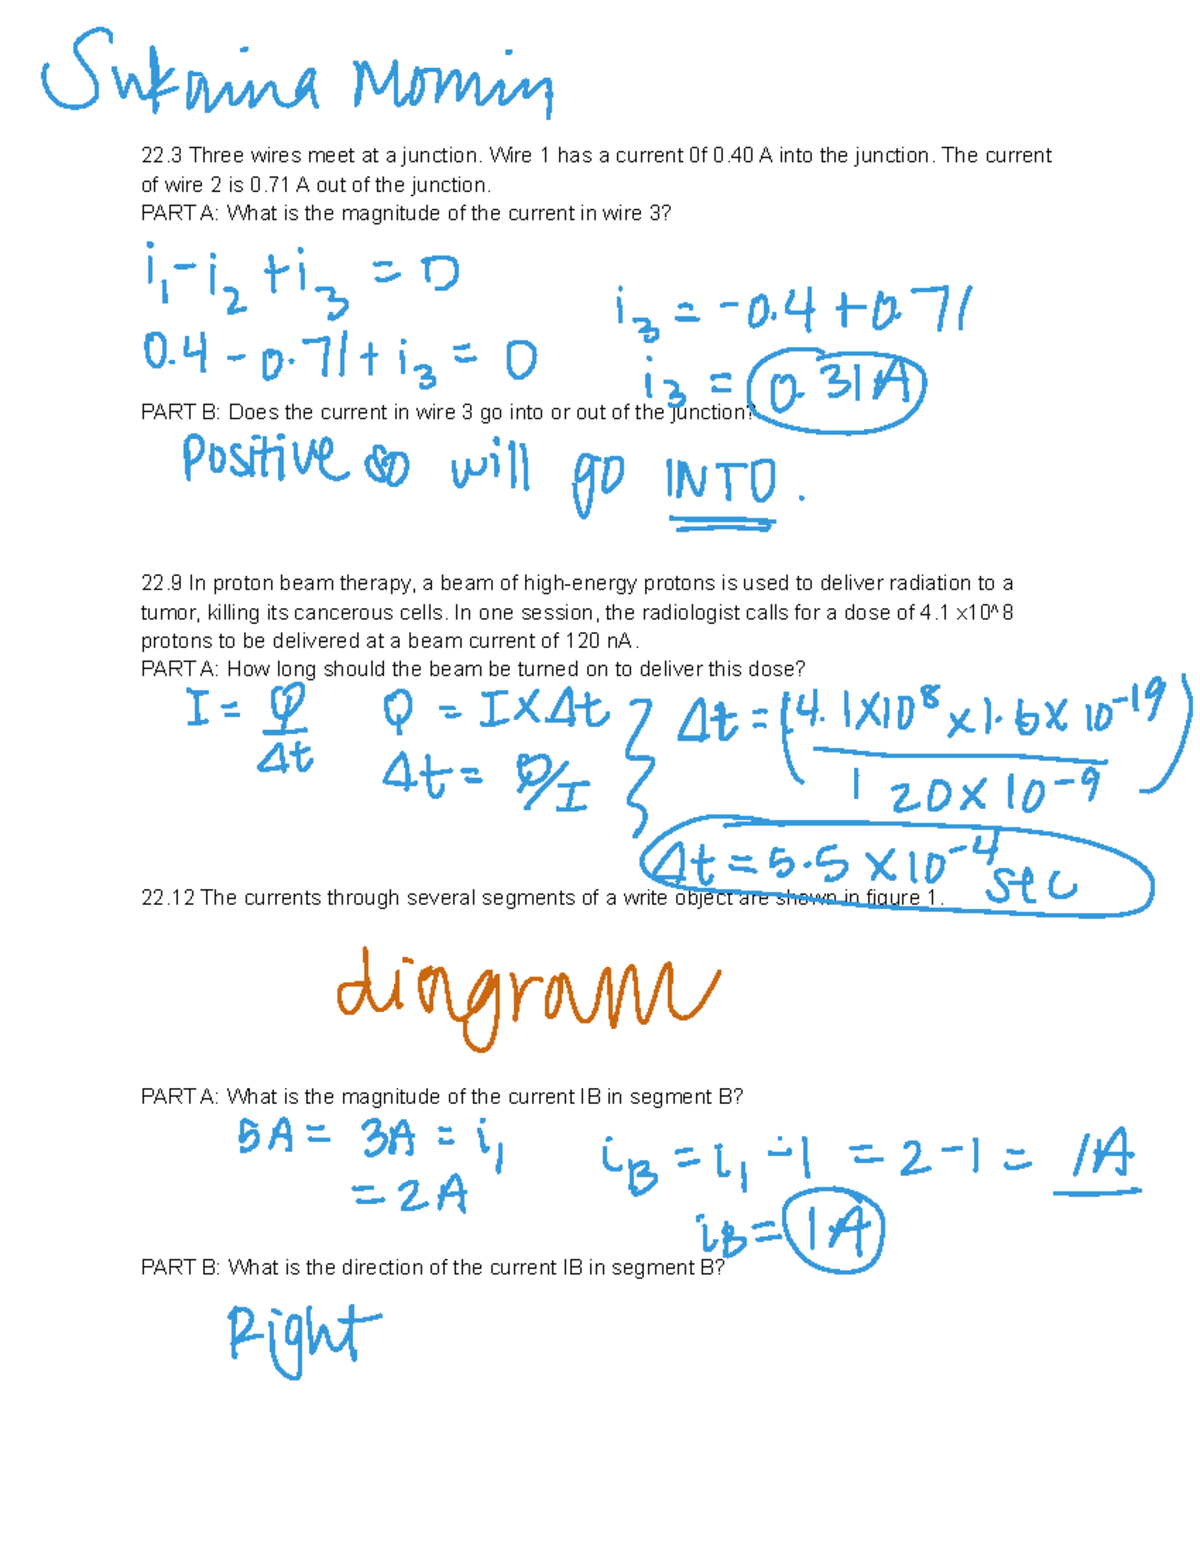 Sukaina Momin
22.3 Three wires meet at a junction. Wire 1 has a current 0f 0.40 A into the junction. The current
of wire 2 is 0.71 A out of the junction.
PART A: What is the magnitude of the current in wire 3?
i₁ - i₂ + i₃ = 0
0.4 - 0.71 + i₃ = 0
i₃ = -0.4 + 0.71
i₃ = 0.31A
PART B: Does the current in wire 3 go into or out of the junction?
Positive so will go INTO.
22.9 In proton beam therapy, a beam of high-energy protons is used to deliver radiation to a
tumor, killing its cancerous cells. In one session, the radiologist calls for a dose of 4.1 x10^8
protons to be delivered at a beam current of 120 nA.
PART A: How long should the beam be turned on to deliver this dose?
I = Q/Δt
Q = I×Δt
Δt = Q/I
Δt = (4.1×10⁸ ×1.6× 10⁻¹⁹ / 120×10⁻⁹)
Δt = 5.5 ×10⁻⁴ sec
22.12 The currents through several segments of a write object are shown in figure 1.
diagram
PART A: What is the magnitude of the current IB in segment B?
5A = 3A = i₁
= 2A
iB = i₁ - 1 = 2-1 = 1A
iB = 1A
PART B: What is the direction of the current IB in segment B?
Right